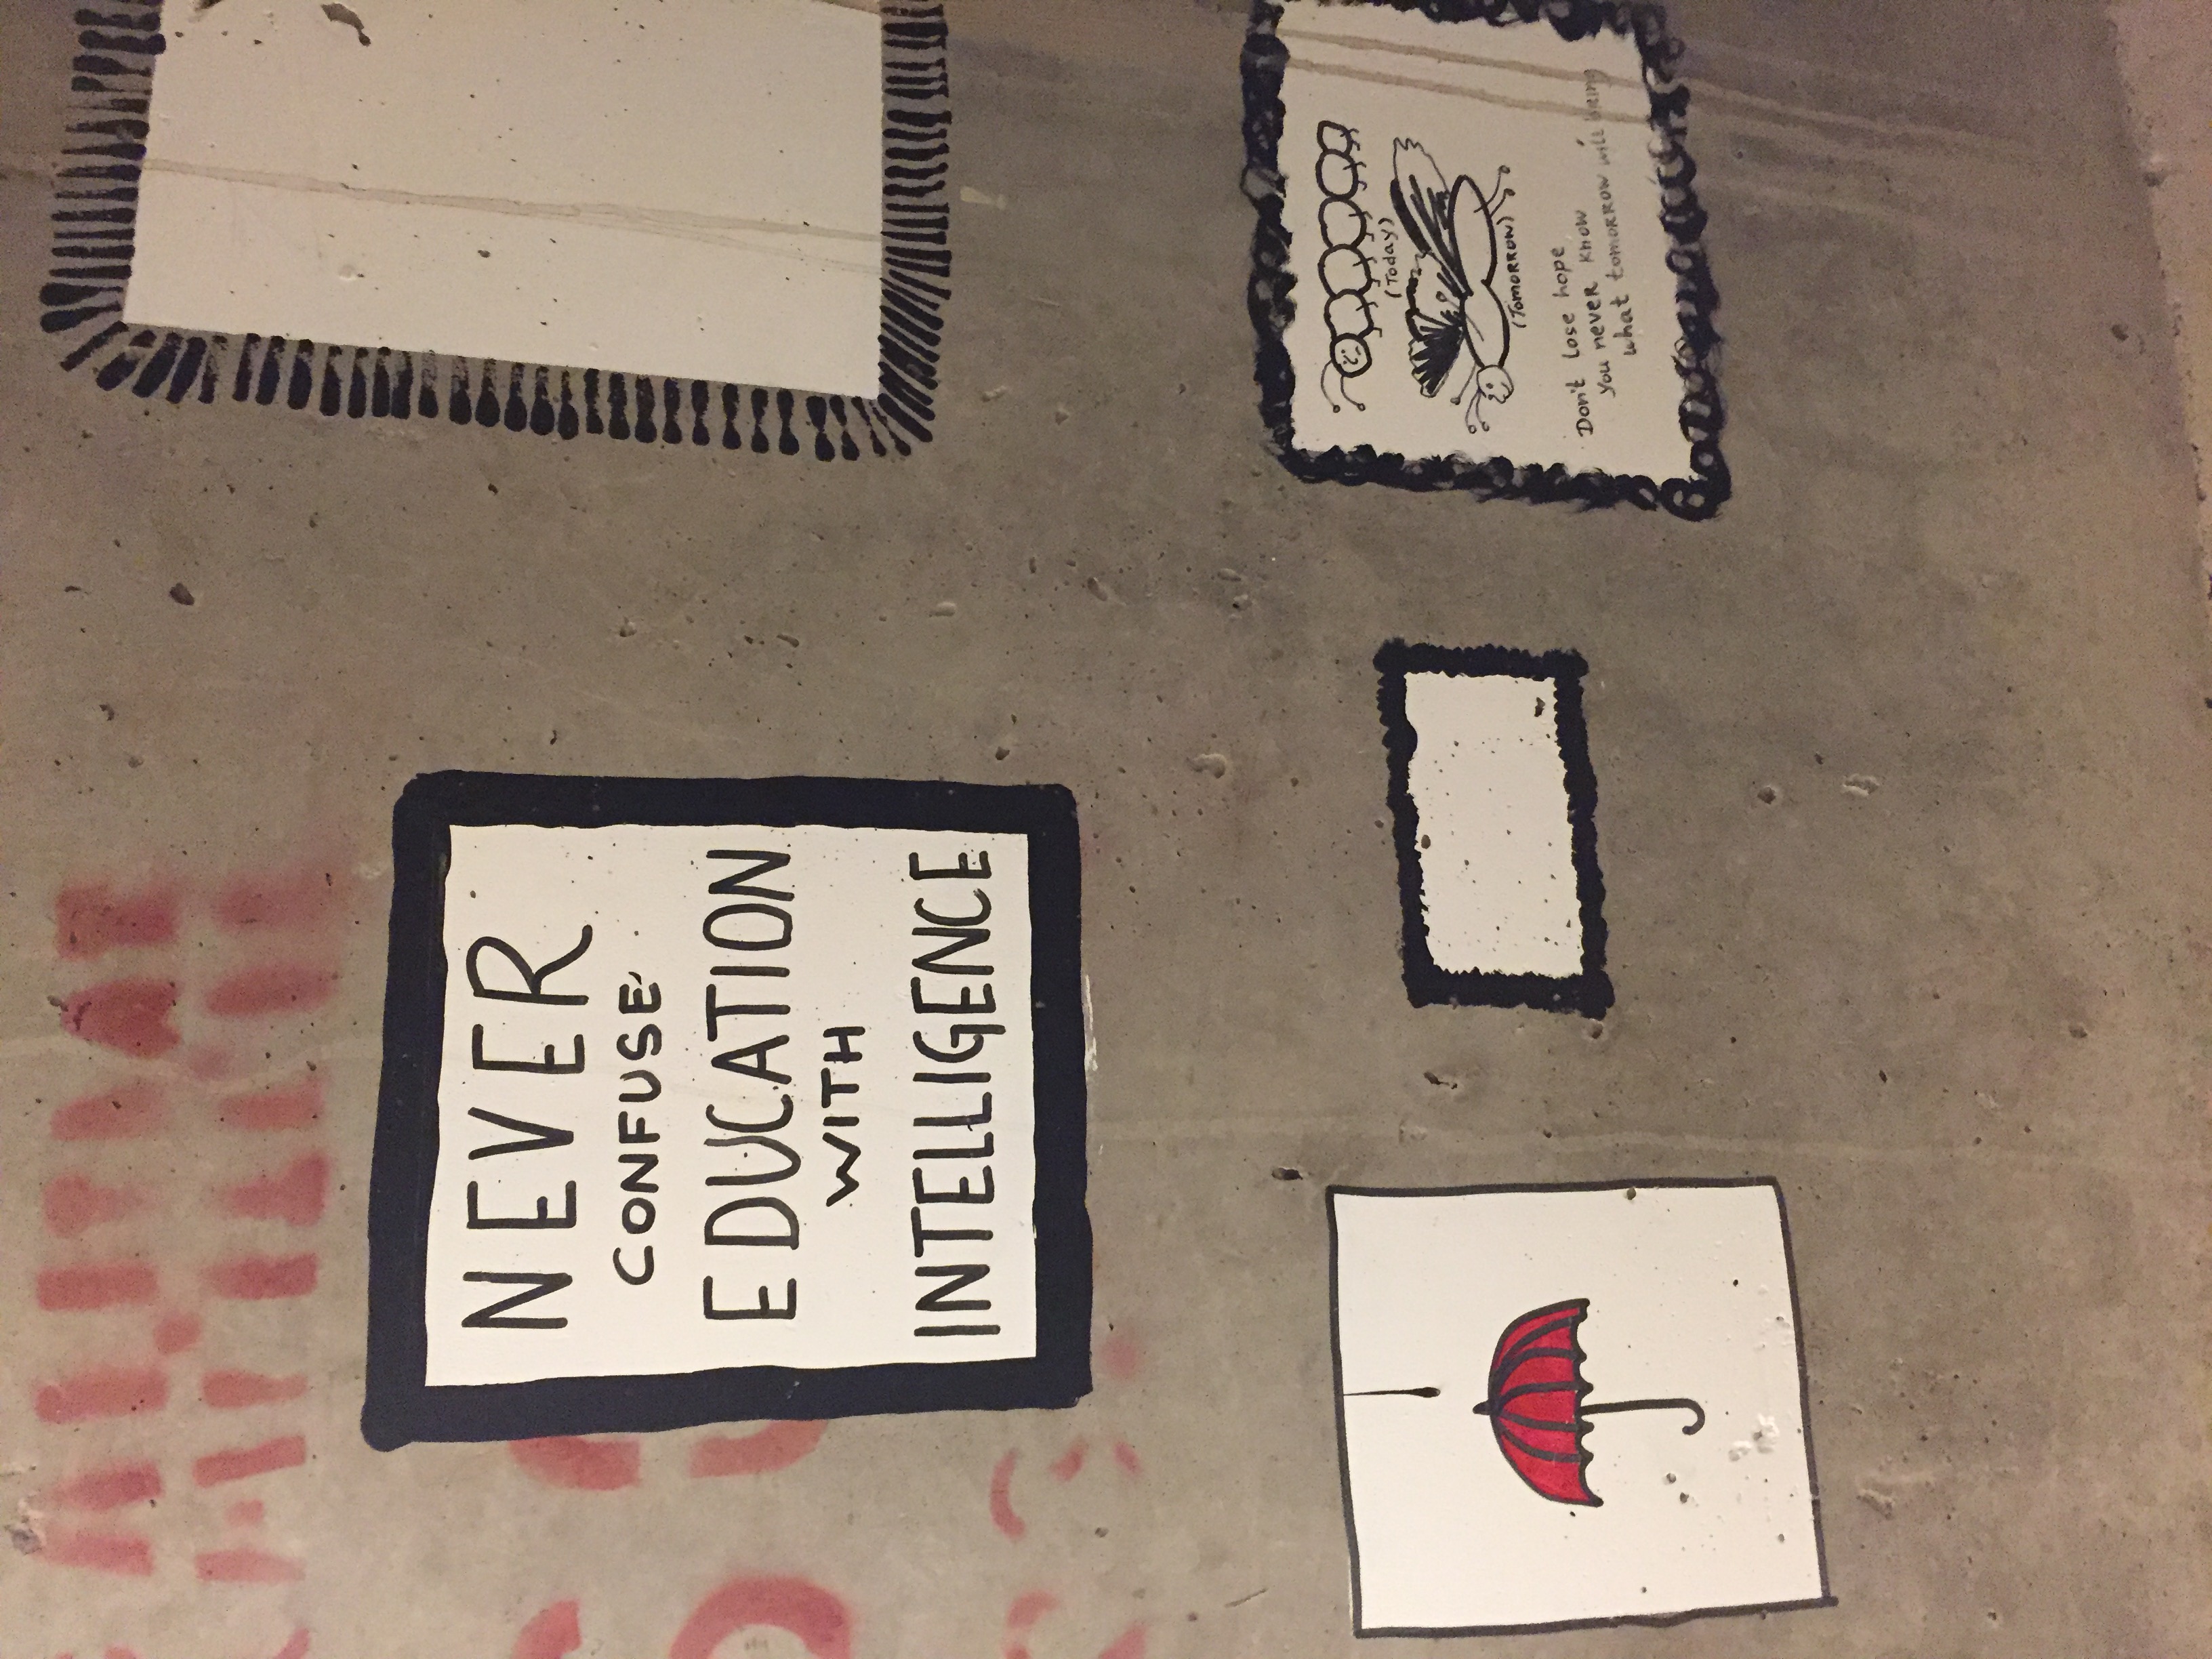 NEVER
CONFUSE
EDUCATION
WITH
INTELLIGENCE
(Today)
(TOMORROW)
Don't lose hope
you never know
what tomorrow will bring